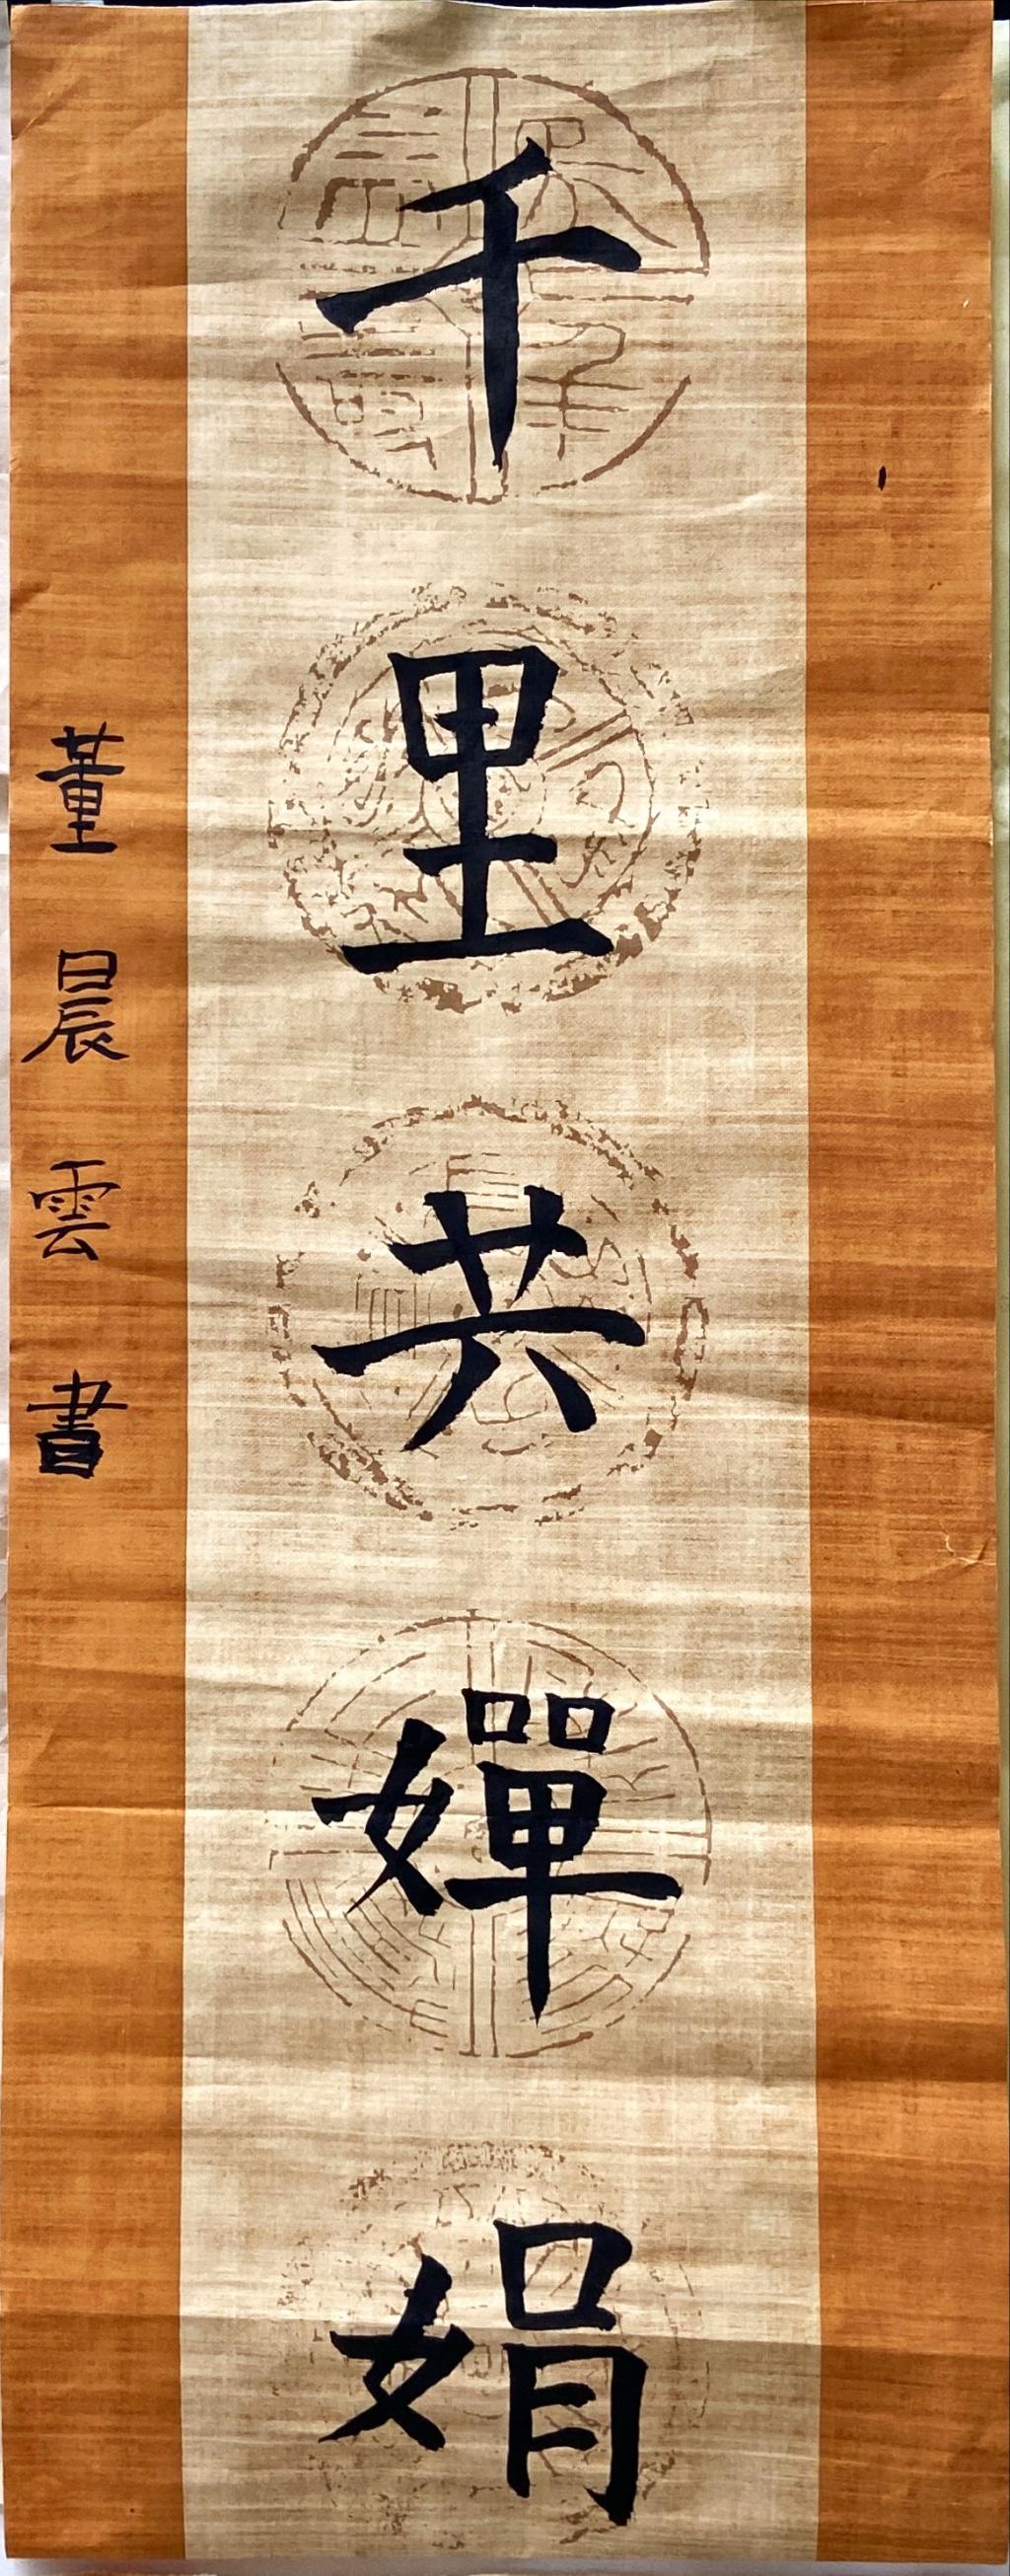 千里共嬋娟
董晨雲書